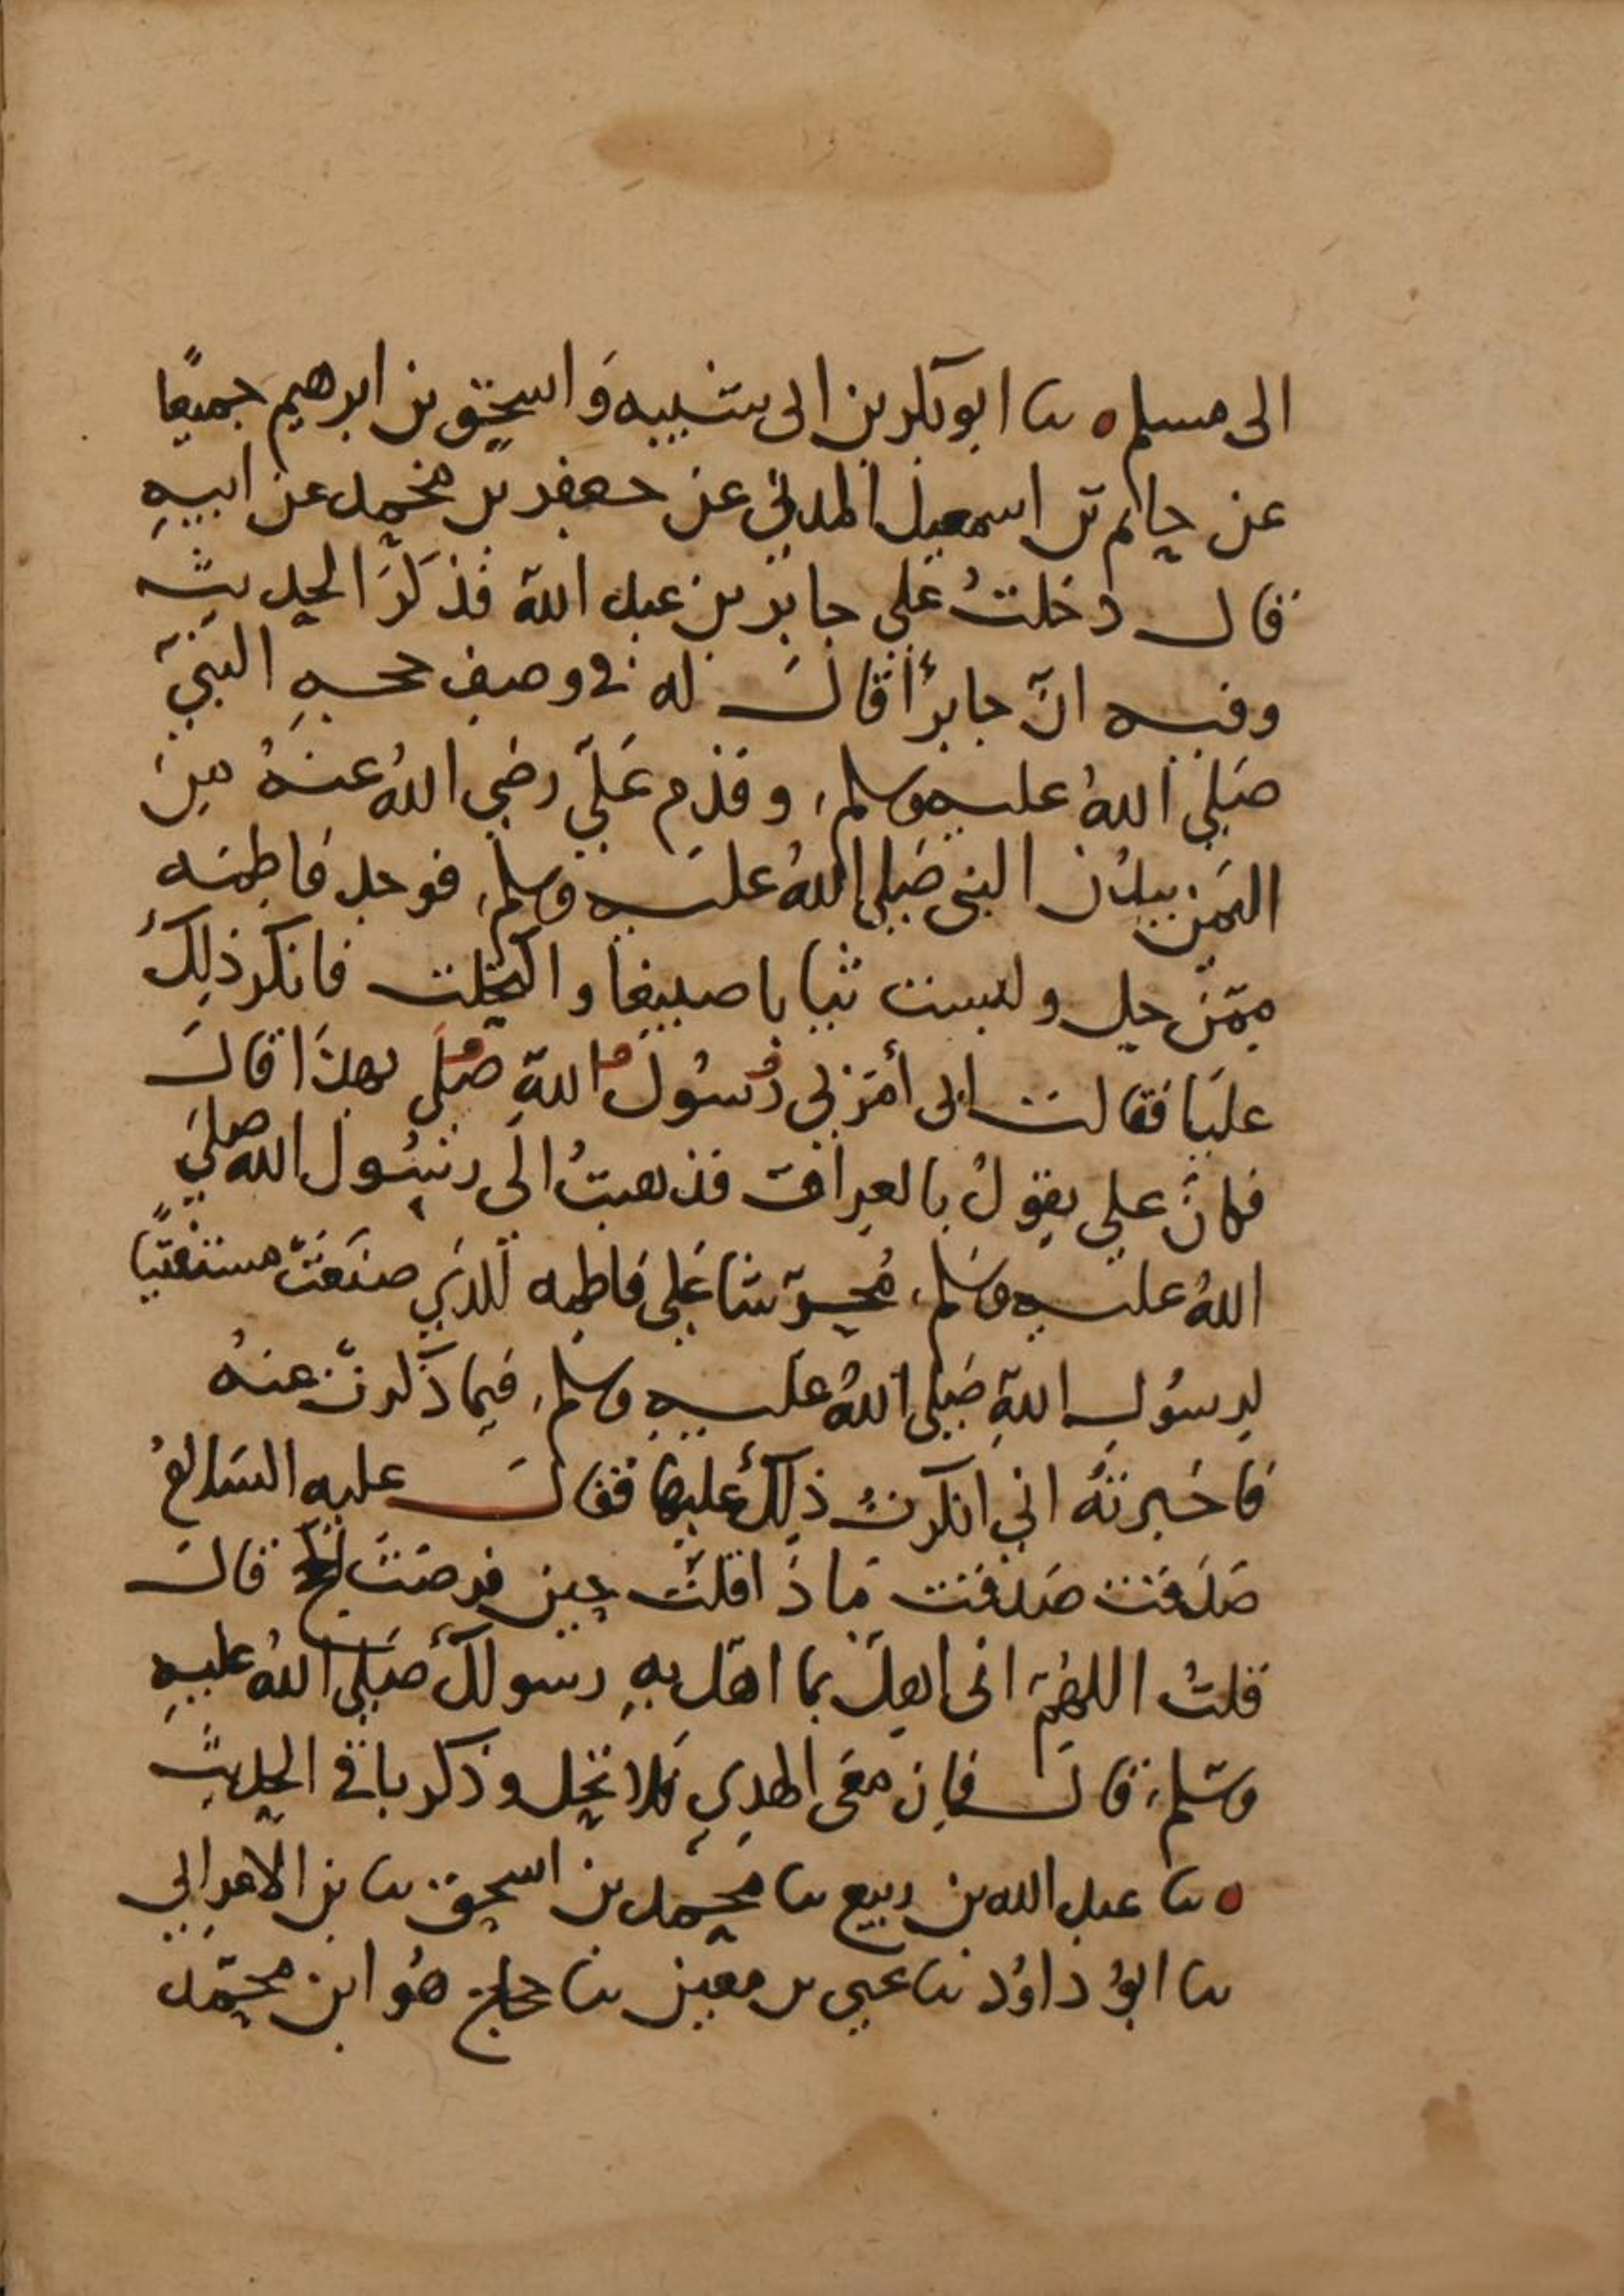 الى مسلم ه ثنا ابو بكر بن ابى شيبه وَاسحق بن ابرهيم جميعًا
عن حاتم بن اسمعيل المدني عن جعفر بن محمد عن ابيهِ
قال دخلتُ علي جابر بن عبد الله فذكَرَ الحديث
وفيه انّ جابرًا قالَ له في وصفِ حجهِ النبيّ
صَلي اللهُ عليه وسلم، وقدم عَليّ رضي اللهُ عنهُ مِن
اليَمَن ببُدْن النبى صَلي اللهُ عليه وسلم، فوجد فاطمه
ممّن حل ولبست ثيابا صبيغا واكتحلت فانكر ذلِكَ
عليَها فقالت ابى أمَرَني رُسُول اللهِ صَلي بهذَا قالَ
فكانَ علي يقولُ بالعراق فذهبتُ الَى رسُول الله صلي
اللهُ عليه وسَلم، مُحرّشا عَلي فاطمه للذي صنَعَتْ مستفتيًا
لرسُول اللهِ صَلي اللهُ عليهِ وسلم، فيما ذَكرتْ عنهُ
فاخبرتهُ اني انكرتُ ذلكَ عليها فقالَ عليه السَلامُ
صَدَقتْ صَدقتْ مَاذَا قلتَ حين فرضتَ الحج قالَ
قلتُ اللهُمّ انى اهِلّ بما اهَل بهِ رسولكَ صَلي اللهُ عليهِ
وسَلم، قالَ فانِ معَى الهدي فلا تحِل وذكر باقي الحديثِ
ه ثنا عبد الله بن ربيع ثنا محَمد بن اسحق ثنا بن الاعرابي
ثنا ابوُ داوُد ثنا يحيى بن معين ثنا حجاج هوُ ابن محمّد